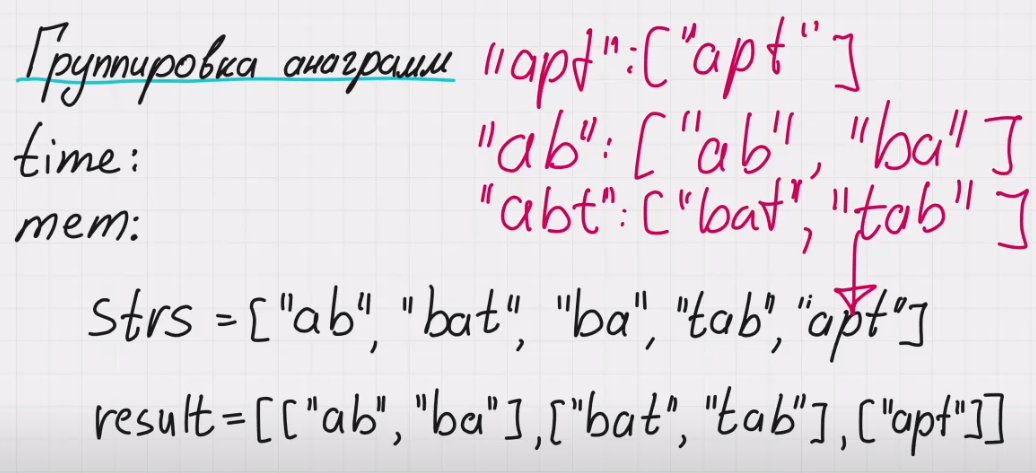 Группировка анаграмм
"apt":["apt"]
time:
"ab":["ab", "ba"]
mem:
"abt":["bat", "tab"]
Strs = ["ab", "bat", "ba", "tab", "apt"]
result=[["ab", "ba"],["bat", "tab"], ["apt"]]